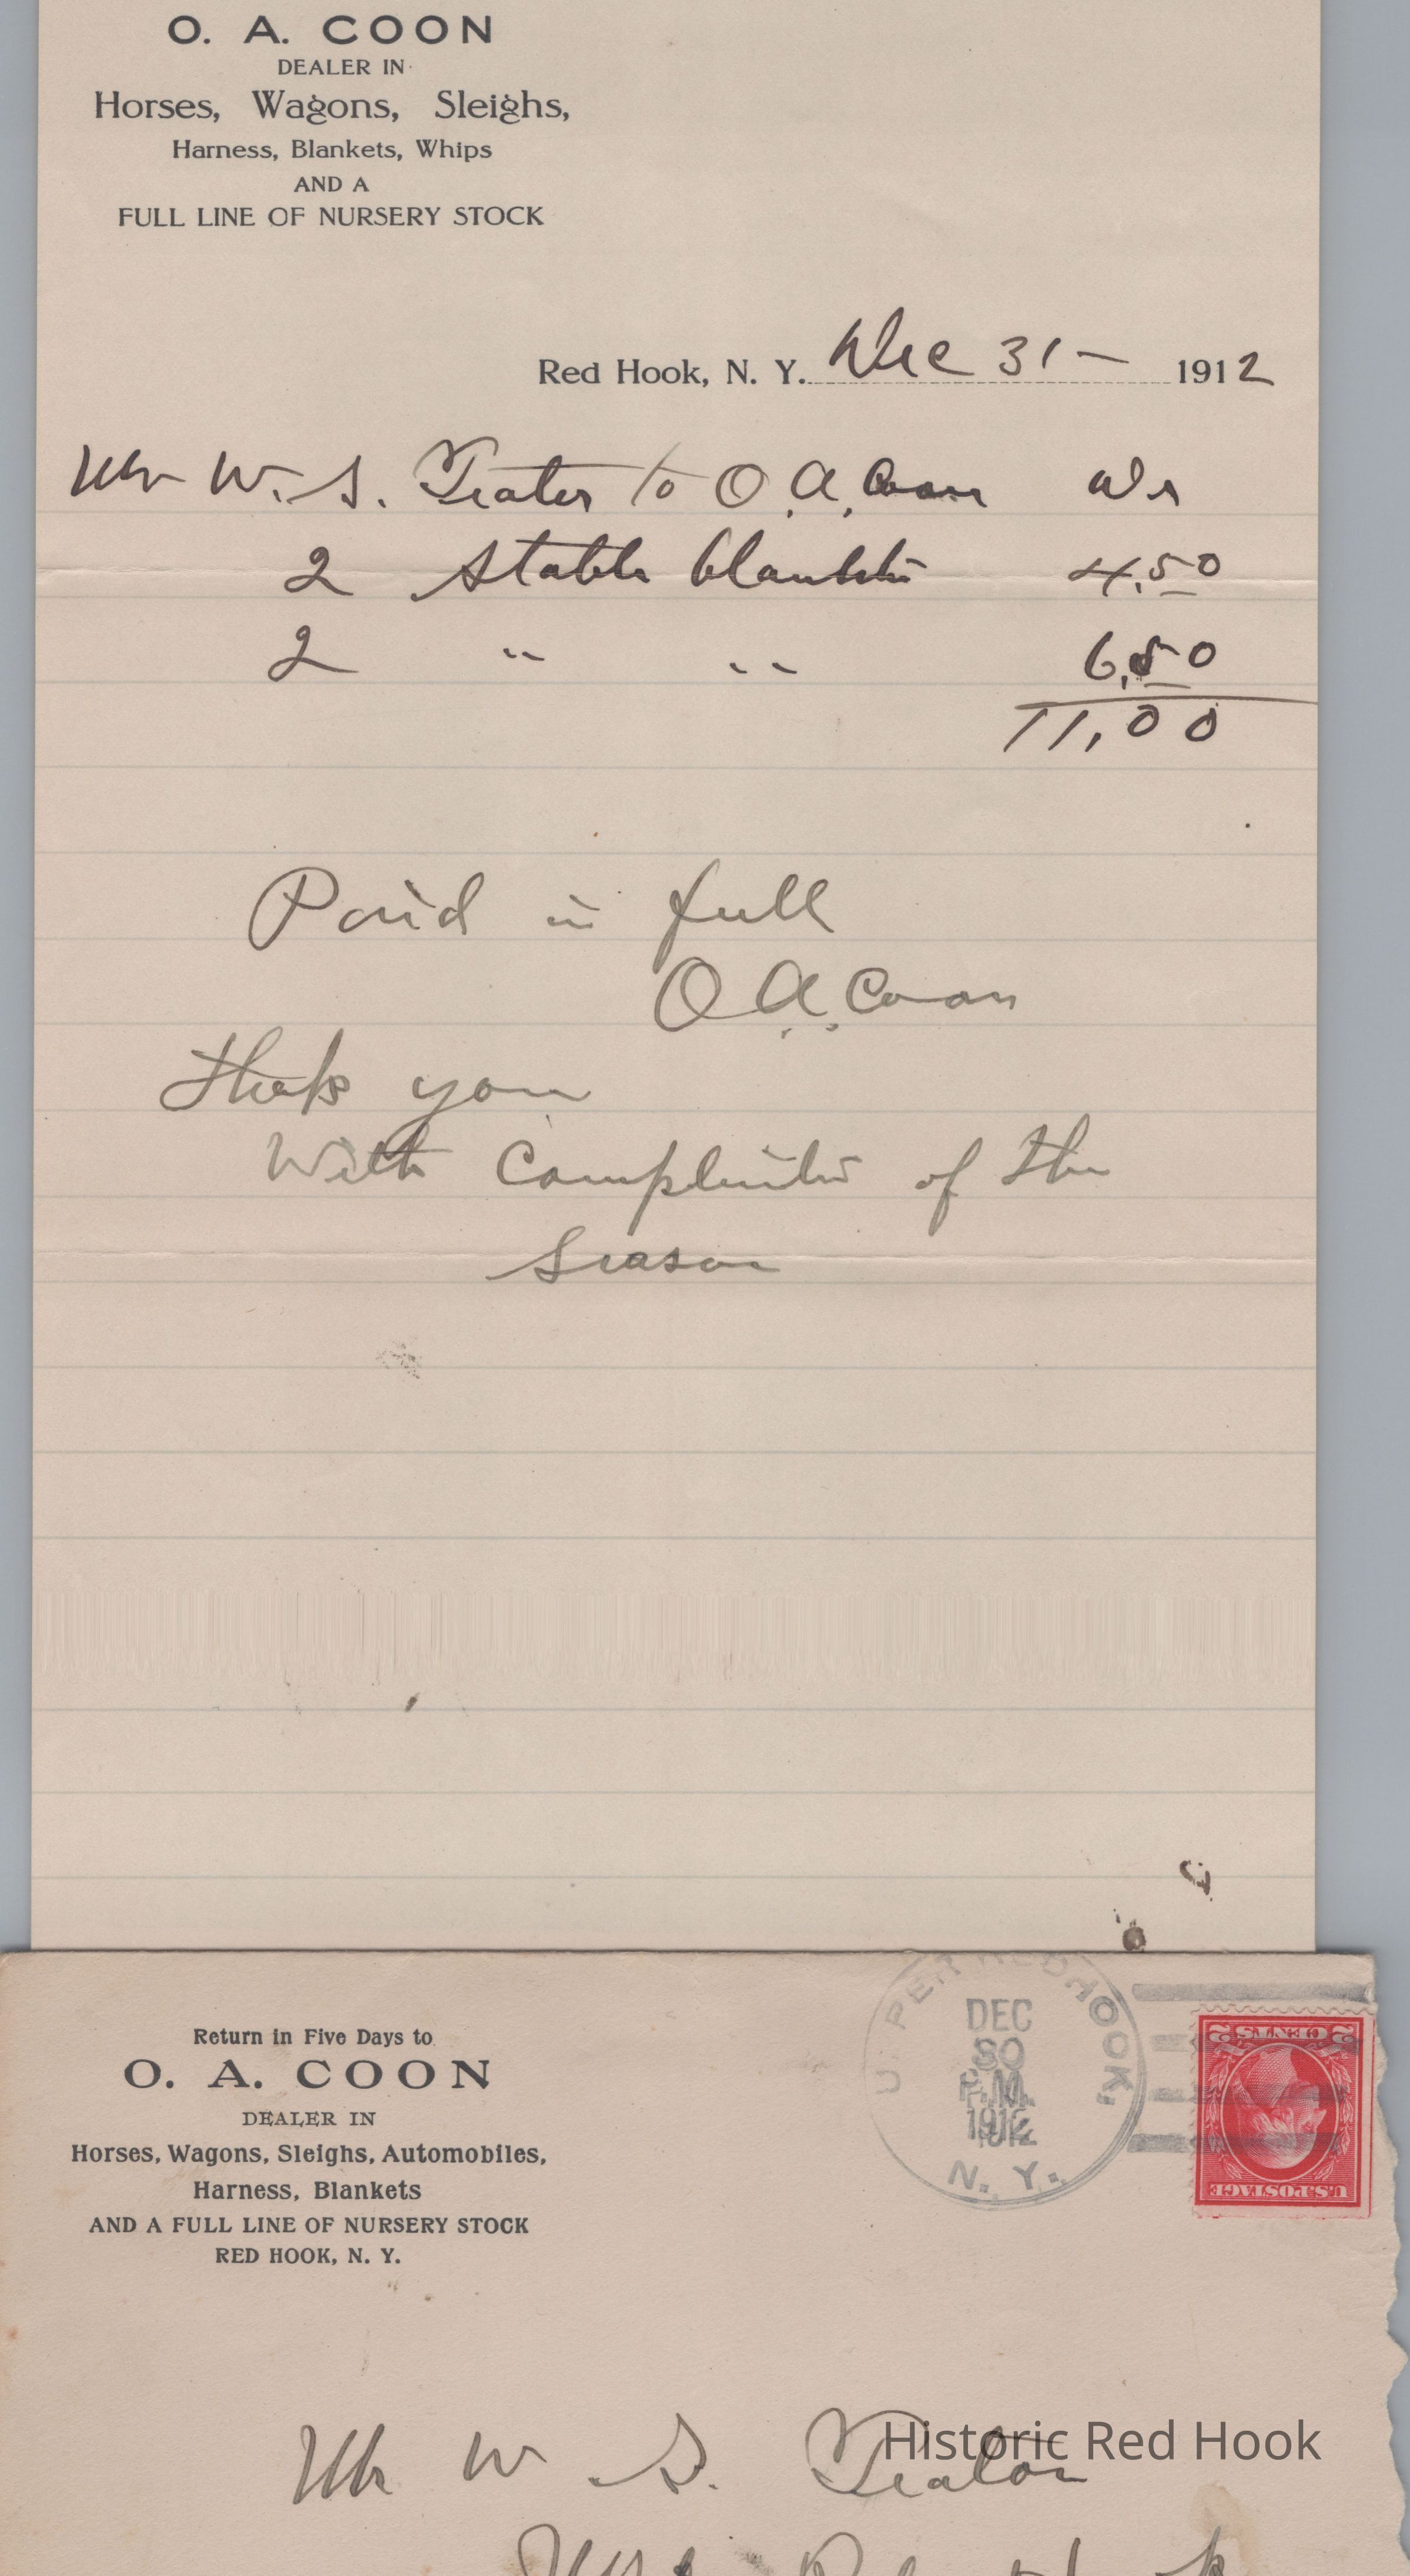 O. A. COON
DEALER IN
Horses, Wagons, Sleighs,
Harness, Blankets, Whips
AND A
FULL LINE OF NURSERY STOCK
Red Hook, N. Y. Dec 31 - 1912
Mr W. S. Teator to O. A. Coon Dr
2 stable blankets 4.50
2 " " 6.50
11,00
Paid in full
O. A. Coon
thaks you
With Complints of the
Season
Return in Five Days to
O. A. COON
DEALER IN
Horses, Wagons, Sleighs, Automobiles,
Harness, Blankets
AND A FULL LINE OF NURSERY STOCK
RED HOOK, N. Y.
UPPER REDHOOK,
DEC
30
P.M.
1912
N. Y.
U.S. POSTAGE
2 CENTS 2
Mr W S. Teator
Historic Red Hook